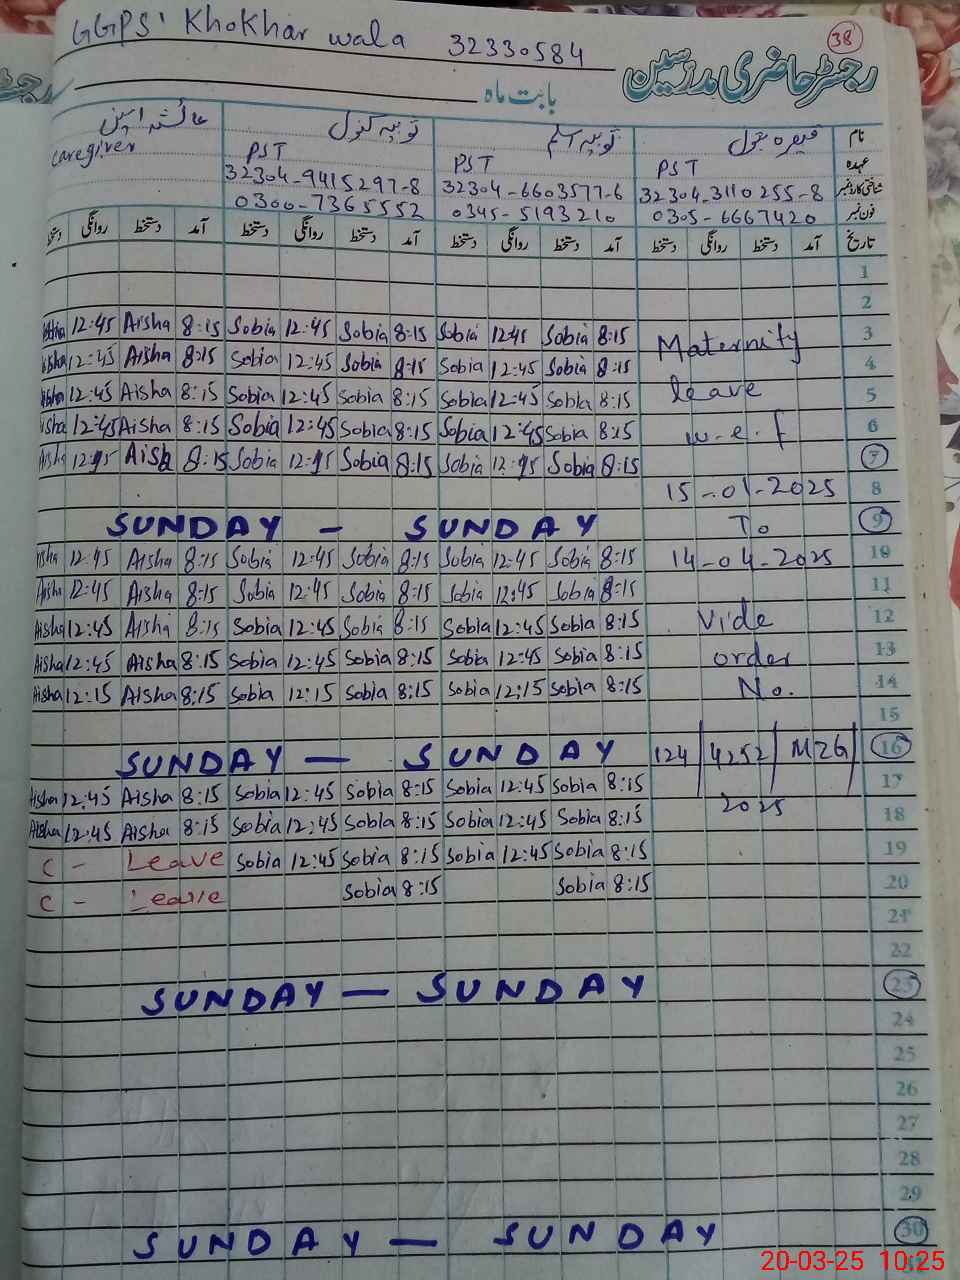 GGPS' Khokhar wala 32330584
38
رجسٹر حاضری مدرسین
بابت ماہ
نام
عہدہ PST PST PST caregiver
شناختی کارڈ نمبر 32304-3110255-8 32304-6603577-6 32304-9415297-8
فون نمبر 0305-6667420 0345-5193210 0300-7365552
تاریخ آمد دستخط روانگی دستخط آمد دستخط روانگی دستخط آمد دستخط روانگی دستخط آمد دستخط روانگی
1
2
12:45 Aisha 8:15 Sobia 12:45 Sobia 8:15 Sobia 12:45 Sobia 8:15 Maternity 3
12:45 Aisha 8:15 Sobia 12:45 Sobia 8:15 Sobia 12:45 Sobia 8:15 4
12:45 Aisha 8:15 Sobia 12:45 Sobia 8:15 Sobia 12:45 Sobia 8:15 leave 5
isha 12:45 Aisha 8:15 Sobia 12:45 Sobia 8:15 Sobia 12:45 Sobia 8:15 w.e.f 6
Aish 8:15 Sobia Sobia 8:15 Sobia Sobia 8:15 7
15-01-2025 8
SUNDAY - SUNDAY To 9
Aisha 12:45 Aisha 8:15 Sobia 12:45 Sobia 8:15 Sobia 12:45 Sobia 8:15 14-04-2025 10
Aisha 12:45 Aisha 8:15 Sobia 12:45 Sobia 8:15 Sobia 12:45 Sobia 8:15 11
Aisha 12:45 Aisha 8:15 Sobia 12:45 Sobia 8:15 Sobia 12:45 Sobia 8:15 Vide 12
Aisha 12:45 Aisha 8:15 Sobia 12:45 Sobia 8:15 Sobia 12:45 Sobia 8:15 order 13
Aisha 12:15 Aisha 8:15 Sobia 12:15 Sobia 8:15 Sobia 12:15 Sobia 8:15 No. 14
15
SUNDAY — SUNDAY 124/4252/MZG/ 16
Aisha 12:45 Aisha 8:15 Sobia 12:45 Sobia 8:15 Sobia 12:45 Sobia 8:15 2025 17
Aisha 12:45 Aisha 8:15 Sobia 12:45 Sobia 8:15 Sobia 12:45 Sobia 8:15 18
C - Leave Sobia 12:45 Sobia 8:15 Sobia 12:45 Sobia 8:15 19
C - Leave Sobia 8:15 Sobia 8:15 20
21
22
SUNDAY — SUNDAY 23
24
25
26
27
28
29
SUNDAY — SUNDAY 30
20-03-25 10:25